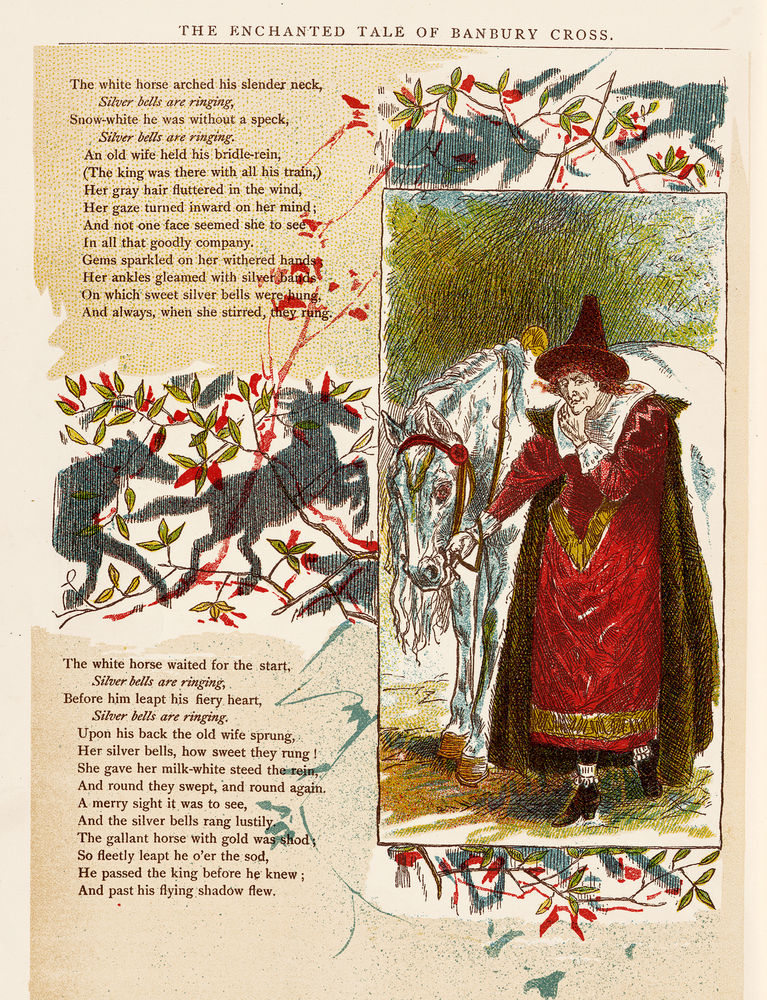 THE ENCHANTED TALE OF BANBURY CROSS.
The white horse arched his slender neck,
Silver bells are ringing,
Snow-white he was without a speck,
Silver bells are ringing.
An old wife held his bridle-rein,
(The king was there with all his train,)
Her gray hair fluttered in the wind,
Her gaze turned inward on her mind;
And not one face seemed she to see
In all that goodly company.
Gems sparkled on her withered hands;
Her ankles gleamed with silver bands
On which sweet silver bells were hung,
And always, when she stirred, they rung.
The white horse waited for the start,
Silver bells are ringing,
Before him leapt his fiery heart,
Silver bells are ringing.
Upon his back the old wife sprung,
Her silver bells, how sweet they rung!
She gave her milk-white steed the rein,
And round they swept, and round again.
A merry sight it was to see,
And the silver bells rang lustily.
The gallant horse with gold was shod;
So fleetly leapt he o'er the sod,
He passed the king before he knew;
And past his flying shadow flew.